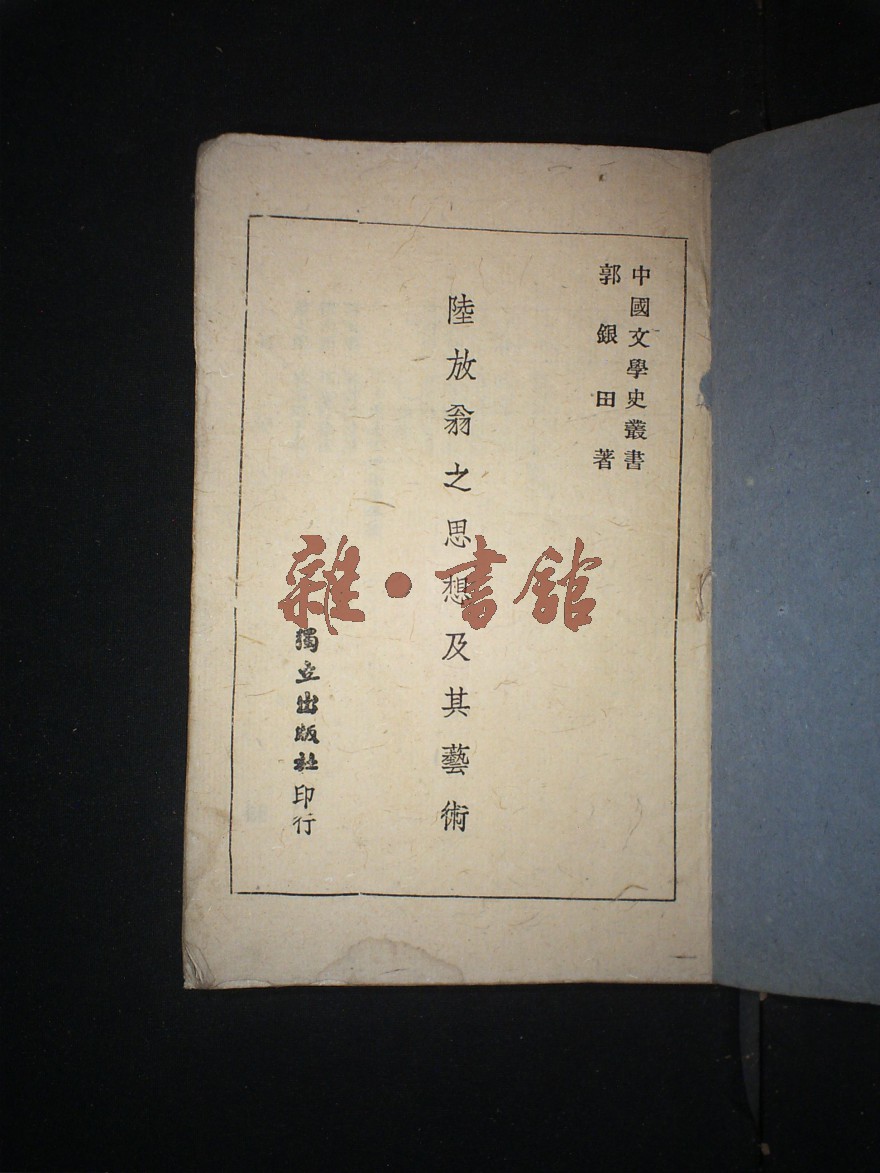 中國文學史叢書
郭銀田著
陸放翁之思想及其藝術
獨立出版社印行
雜·書館